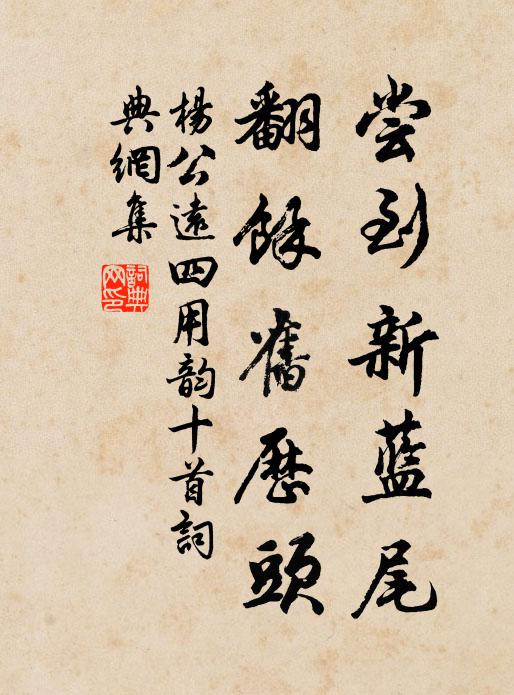 尝到新蓝尾
翻餘舊歷頭
楊公遠四用韵十首詞
典網集
詞典网印